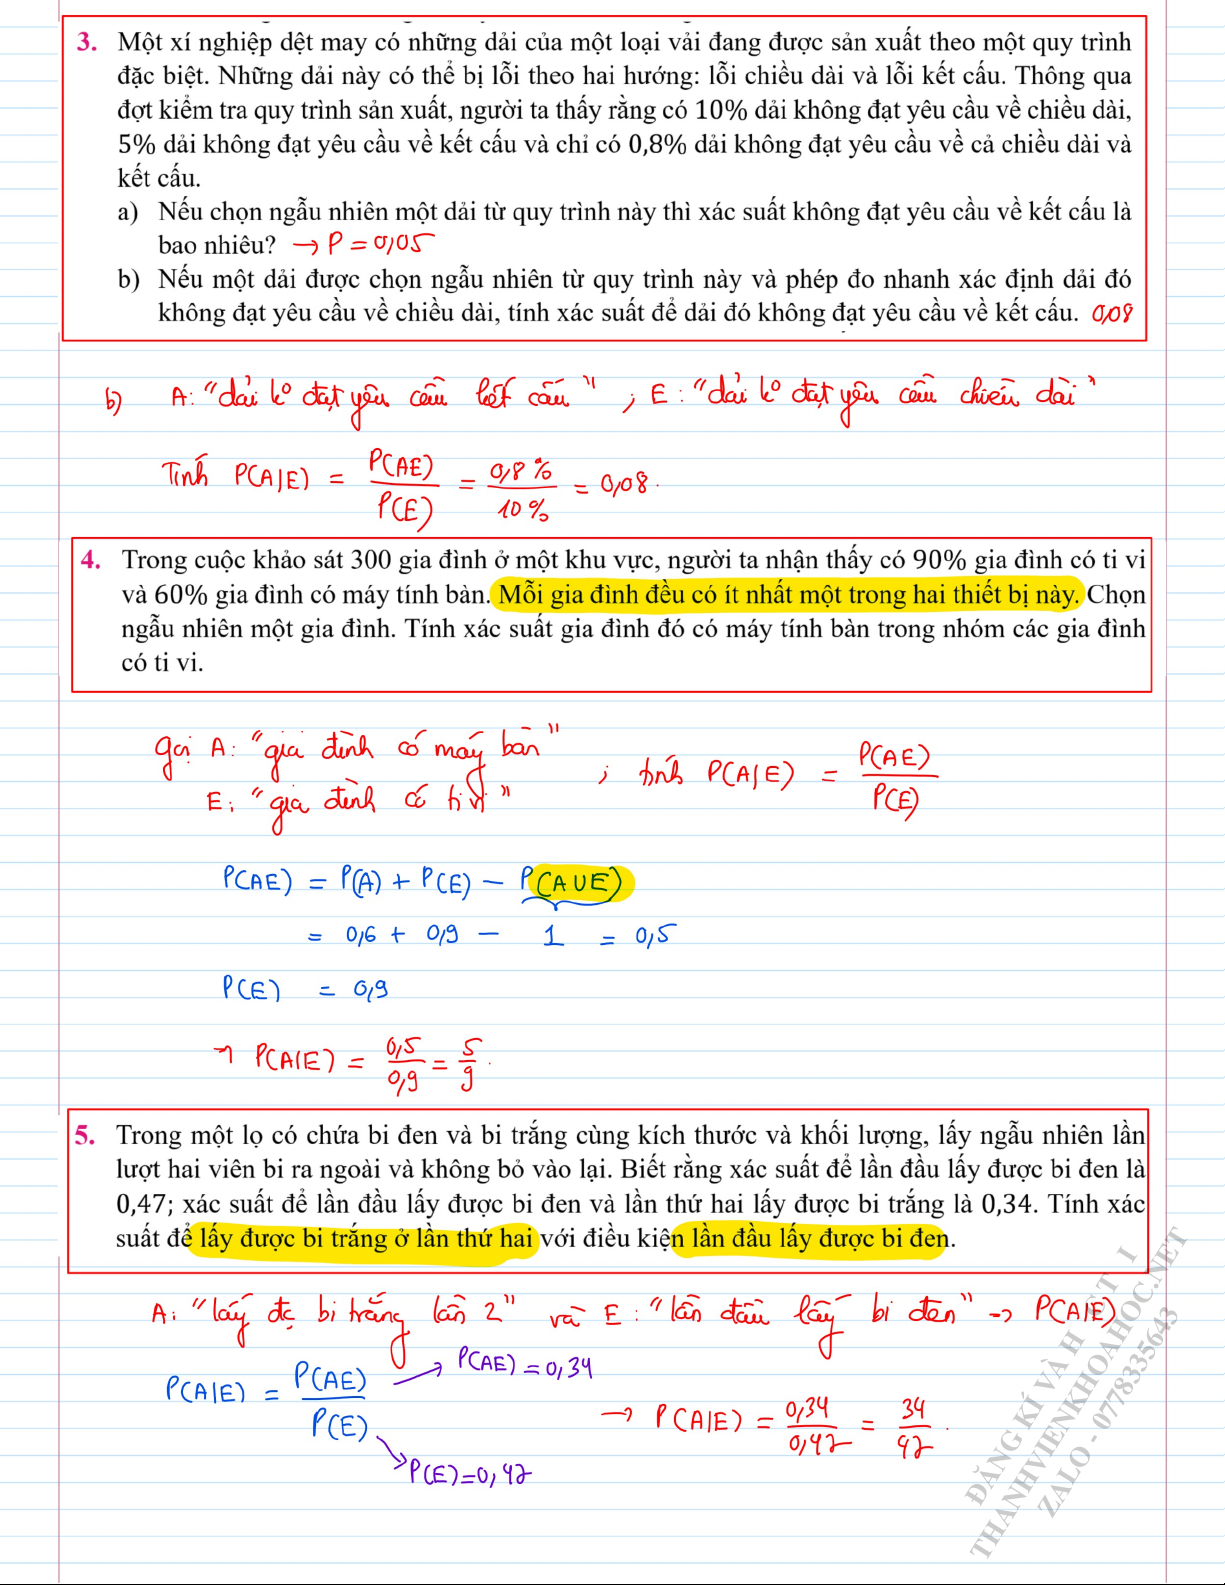 3. Một xí nghiệp dệt may có những dải của một loại vải đang được sản xuất theo một quy trình
đặc biệt. Những dải này có thể bị lỗi theo hai hướng: lỗi chiều dài và lỗi kết cấu. Thông qua
đợt kiểm tra quy trình sản xuất, người ta thấy rằng có 10% dải không đạt yêu cầu về chiều dài,
5% dải không đạt yêu cầu về kết cấu và chỉ có 0,8% dải không đạt yêu cầu về cả chiều dài và
kết cấu.
a) Nếu chọn ngẫu nhiên một dải từ quy trình này thì xác suất không đạt yêu cầu về kết cấu là
bao nhiêu? → P = 0,05
b) Nếu một dải được chọn ngẫu nhiên từ quy trình này và phép đo nhanh xác định dải đó
không đạt yêu cầu về chiều dài, tính xác suất để dải đó không đạt yêu cầu về kết cấu. 0,08
b) A: "dải ko đạt yêu cầu kết cấu" ; E: "dải ko đạt yêu cầu chiều dài"
Tính P(A|E) = P(AE)/P(E) = 0,8%/10% = 0,08.
4. Trong cuộc khảo sát 300 gia đình ở một khu vực, người ta nhận thấy có 90% gia đình có ti vi
và 60% gia đình có máy tính bàn. Mỗi gia đình đều có ít nhất một trong hai thiết bị này. Chọn
ngẫu nhiên một gia đình. Tính xác suất gia đình đó có máy tính bàn trong nhóm các gia đình
có ti vi.
gọi A: "gia đình có máy bàn"
E: "gia đình có ti vi" ; tính P(A|E) = P(AE)/P(E)
P(AE) = P(A) + P(E) - P(A∪E)
= 0,6 + 0,9 - 1 = 0,5
P(E) = 0,9
→ P(A|E) = 0,5/0,9 = 5/9.
5. Trong một lọ có chứa bi đen và bi trắng cùng kích thước và khối lượng, lấy ngẫu nhiên lần
lượt hai viên bi ra ngoài và không bỏ vào lại. Biết rằng xác suất để lần đầu lấy được bi đen là
0,47; xác suất để lần đầu lấy được bi đen và lần thứ hai lấy được bi trắng là 0,34. Tính xác
suất để lấy được bi trắng ở lần thứ hai với điều kiện lần đầu lấy được bi đen.
A: "lấy đc bi trắng lần 2" và E: "lần đầu lấy bi đen" → P(A|E)
P(A|E) = P(AE)/P(E) → P(AE) = 0,34
→ P(E) = 0,47
→ P(A|E) = 0,34/0,47 = 34/47.
ĐĂNG KÍ VÀ H T I
THANHVIENKHOAHOC.NET
ZALO - 0778335643